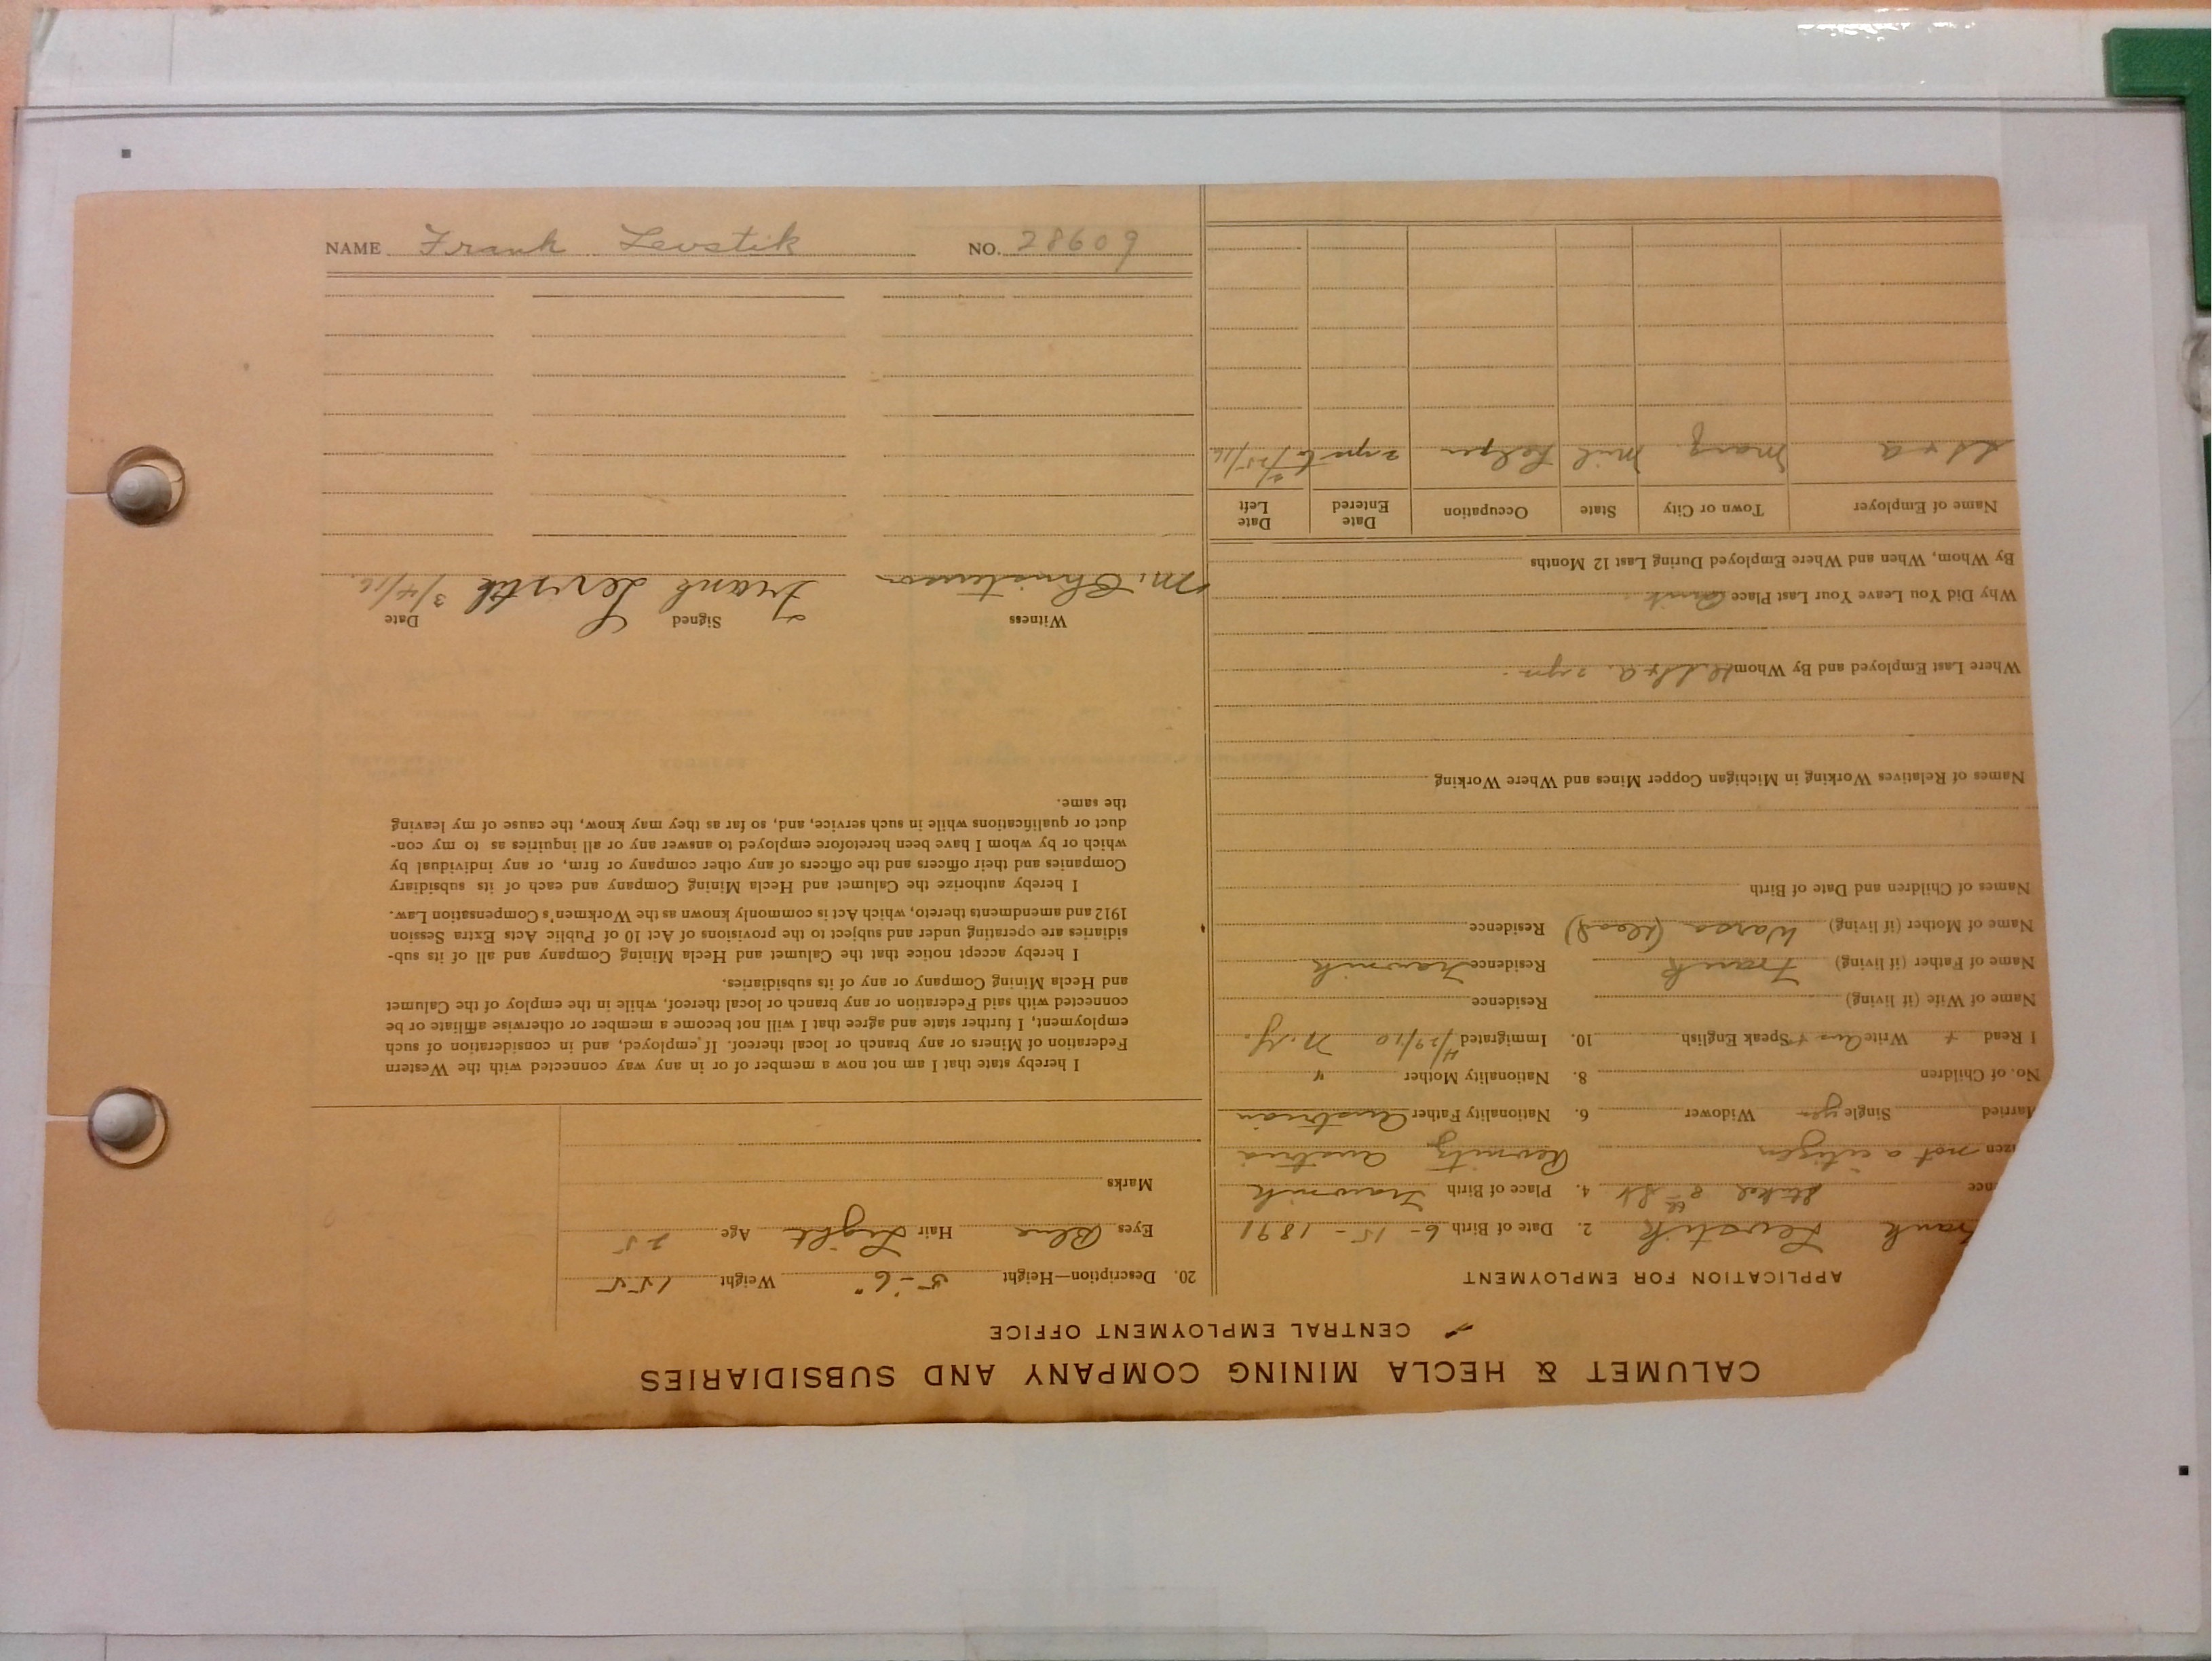 CALUMET & HECLA MINING COMPANY AND SUBSIDIARIES
CENTRAL EMPLOYMENT OFFICE
APPLICATION FOR EMPLOYMENT
rank Levstik 2. Date of Birth 6 - 15 - 1891
nce 8th St 4. Place of Birth
izen not a citizen Austria
Married Single yes Widower 6. Nationality Father Austrian
No. of Children 8. Nationality Mother "
I Read + Write Aus + Speak English 10. Immigrated 4/29/10 N.Y.
Name of Wife (if living) Residence
Name of Father (if living) Frank Residence
Name of Mother (if living) (dead) Residence
Names of Children and Date of Birth
Names of Relatives Working in Michigan Copper Mines and Where Working
Where Last Employed and By Whom
Why Did You Leave Your Last Place Quit
By Whom, When and Where Employed During Last 12 Months
Name of Employer Town or City State Occupation Date Entered Date Left
Marq. Mich
20. Description—Height 5-6" Weight 155
Eyes Blue Hair Light Age 25
Marks
I hereby state that I am not now a member of or in any way connected with the Western
Federation of Miners or any branch or local thereof. If employed, and in consideration of such
employment, I further state and agree that I will not become a member or otherwise affiliate or be
connected with said Federation or any branch or local thereof, while in the employ of the Calumet
and Hecla Mining Company or any of its subsidiaries.
I hereby accept notice that the Calumet and Hecla Mining Company and all of its sub-
sidiaries are operating under and subject to the provisions of Act 10 of Public Acts Extra Session
1912 and amendments thereto, which Act is commonly known as the Workmen's Compensation Law.
I hereby authorize the Calumet and Hecla Mining Company and each of its subsidiary
Companies and their officers and the officers of any other company or firm, or any individual by
which or by whom I have been heretofore employed to answer any or all inquiries as to my con-
duct or qualifications while in such service, and, so far as they may know, the cause of my leaving
the same.
Witness Signed Date
Frank Levstik
NAME Frank Levstik NO. 28609